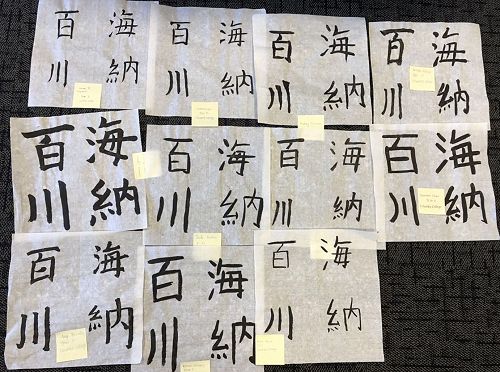 海納
百川
海納
百川
海納
百川
海納
百川
海納
百川
海納
百川
海納
百川
海納
百川
海納
百川
海納
百川
海納
百川